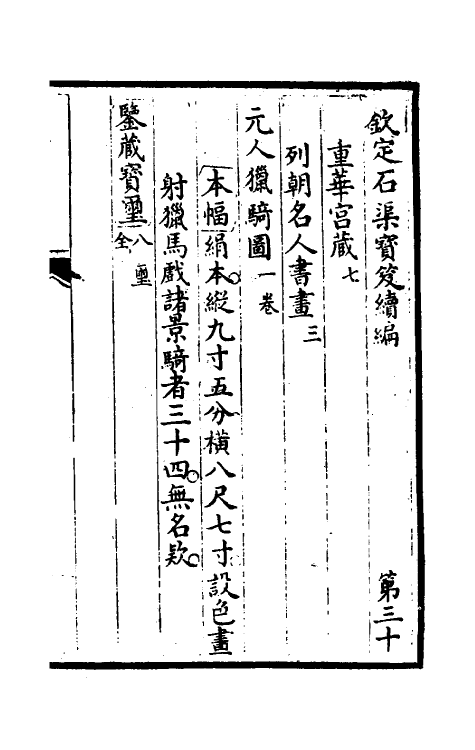 欽定石渠寶笈續編 第三十
重華宮藏七
列朝名人書畫三
元人獵騎圖一卷
本幅絹本縱九寸五分橫八尺七寸設色畫
射獵馬戲諸景騎者三十四無名欵
鑒藏寶璽八璽全